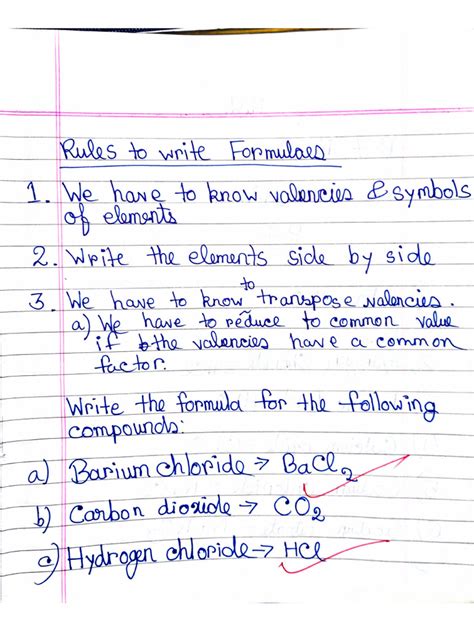 Rules to write Formulaes
1. We have to know valencies & symbols
of elements
2. Write the elements side by side
3. We have to know to transpose valencies.
a) We have to reduce to common value
if the valencies have a common
factor.
Write the formula for the following
compounds:
a) Barium chloride → BaCl₂
b) Carbon dioxide → CO₂
c) Hydrogen chloride → HCl